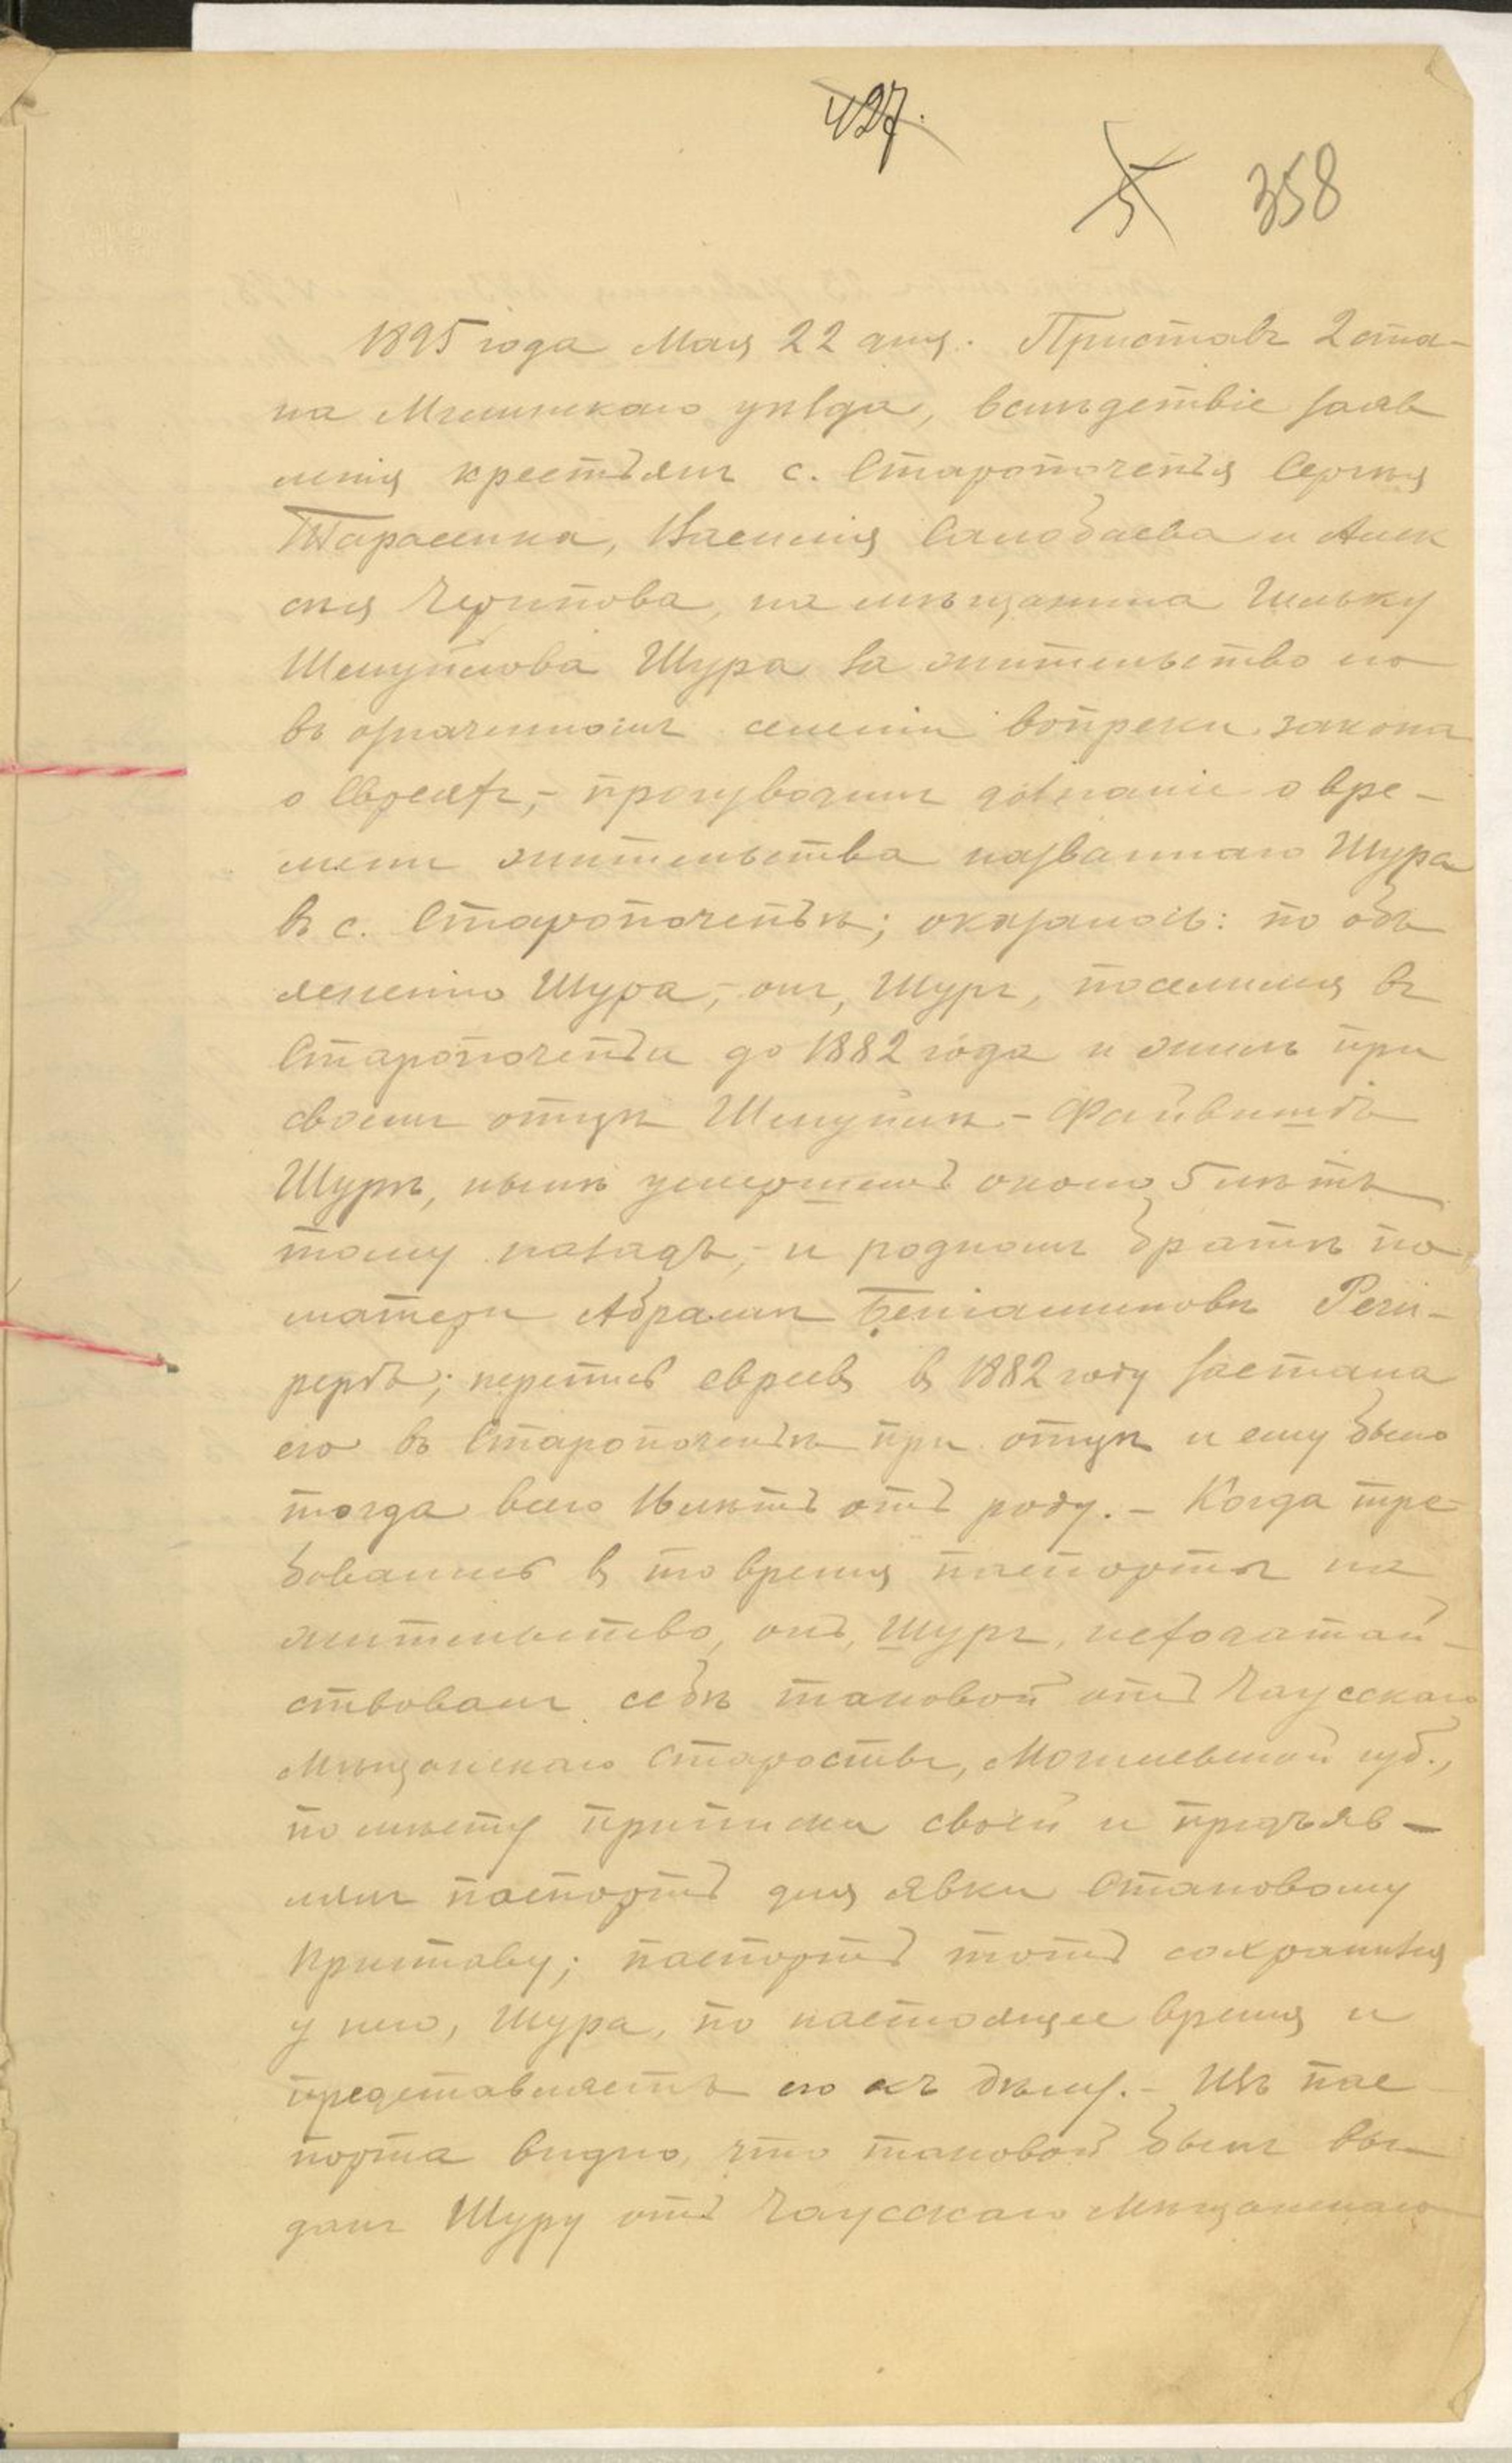 427.
5 358
1895 года Мая 22 дня. Приставъ 2 ста-
на Мглинскаго уѣзда, вслѣдствіе заяв
ленія крестьянъ с. Старопочепья Сергѣя
Тарасенка, Василія Самобаева и Алек
сѣя на мѣщанина
Шмуйлова Шура за жительство его
въ означенномъ селеніи вопреки закона
о Евреяхъ,- производилъ дознаніе о вре-
мени жительства названнаго Шура
въ с. Старопочепьѣ; оказалось: по объ
ясненію Шура,- онъ, Шуръ, поселился въ
Старопочепьи до 1882 года и жилъ при
своемъ отцѣ Шмуйлѣ-Файвишѣ
Шурѣ, нынѣ умершемъ около 5 лѣтъ
тому назадъ,- и родномъ братѣ по
матери Абрамѣ Беніаминовѣ
перепись евреевъ въ 1882 году застала
его въ Старопочепьѣ при отцѣ и ему было
тогда всего 16 лѣтъ отъ роду. - Когда тре-
бовались въ то время паспорты на
жительство, онъ, Шуръ, исходатай-
ствовалъ себѣ таковой отъ Чаусскаго
Мѣщанскаго Старосты, Могилевской губ.,
по мѣсту приписки своей и предъяв-
лялъ паспортъ для явки Становому
Приставу; паспортъ тотъ сохранился
у него, Шура, по настоящее время и
представляетъ его къ дѣлу. - Изъ пас
порта видно, что таковой былъ вы
данъ Шуру отъ Чаусскаго Мѣщанскаго